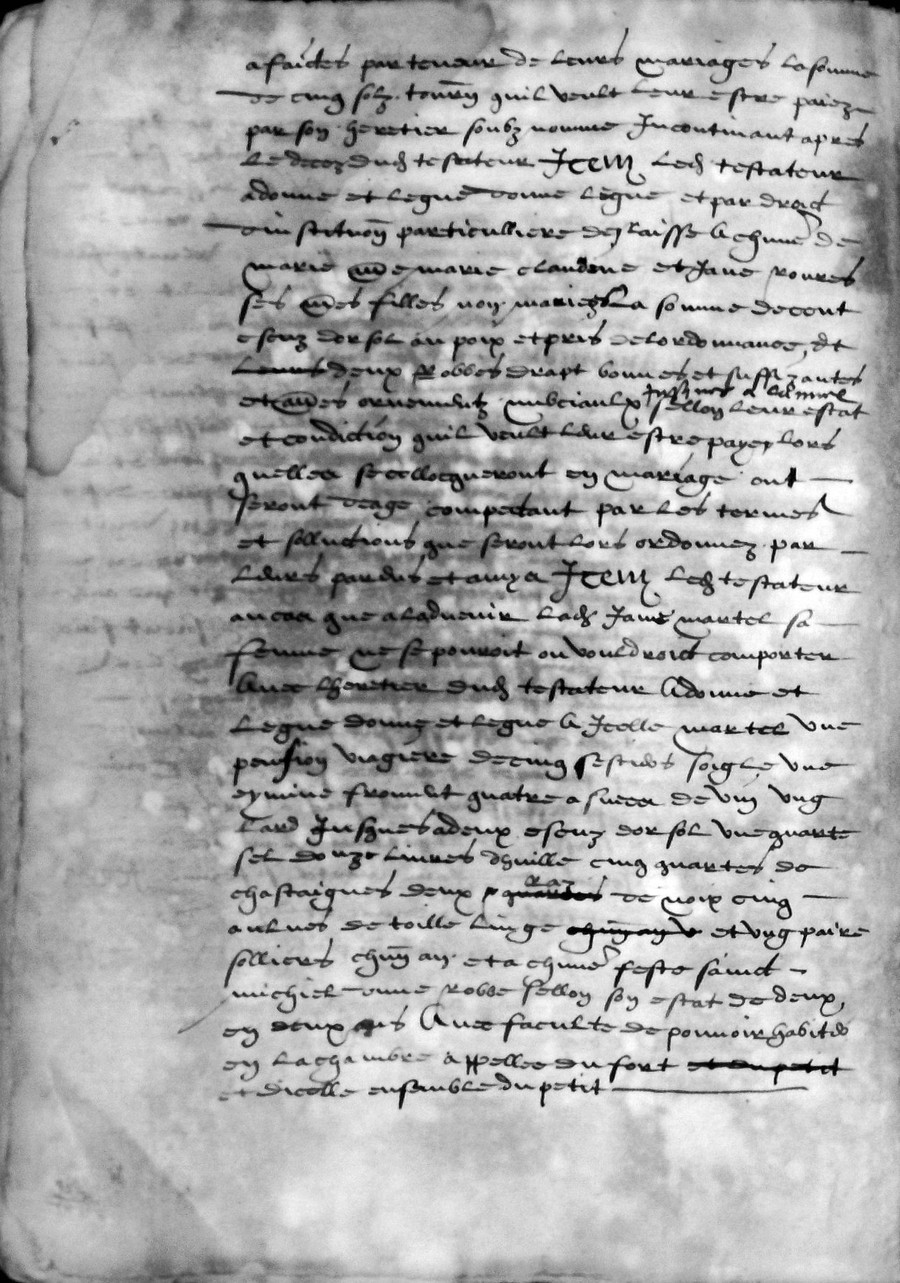 a faictes par teneur de leurs mariages la somme
de cinq solz tourn quil veult leur estre paiez
par son heretier soubz nomme Incontinant apres
le decez dud testateur Item led testateur
a donne et legue donne legue et par droict
dinstitution particulliere delaisse a chune de
marie aue marie claudene et Jane roures
ses aues filles non mariees La somme de cent
escuz dor sol au poix et pris de lordonnance, et
leurs deux Robbes drapt bonnes et suffizantes
Jusques a la mort
et aues ornementz nubciaulx sellon leur estat
et condicion quil veult leur estre payes lors
quelles se collocqueront en mariage ont
seront deage compectant par les termes
et solluctions que seront lors ordonnez par
leurs pardns et amys Item led testateur
au cas que a ladvenir lad Jane martel sa
femme ne se pouroit ou vouldroict comporter
Avec lheretier dud testateur A donne et
legue donne et legue a Icelle martel vne
pension viagiere de cinq sestiers soigle vne
eymine froment quatre asnees de vin vng
lard Jusques a deux escuz dor sol vne quarte
sel douze liures dhuille cinq quartes de
chastaignes deux quartes de noix cinq
aulnes de toille linge et vng paire
solliers chun an et a chune feste sainct
michiel dune robbe sellon son estat de deux
en deux ans Avec faculte de pouvoir habiter
en la chambre appellee du fort et du petit
et dicelle ensemble du petit